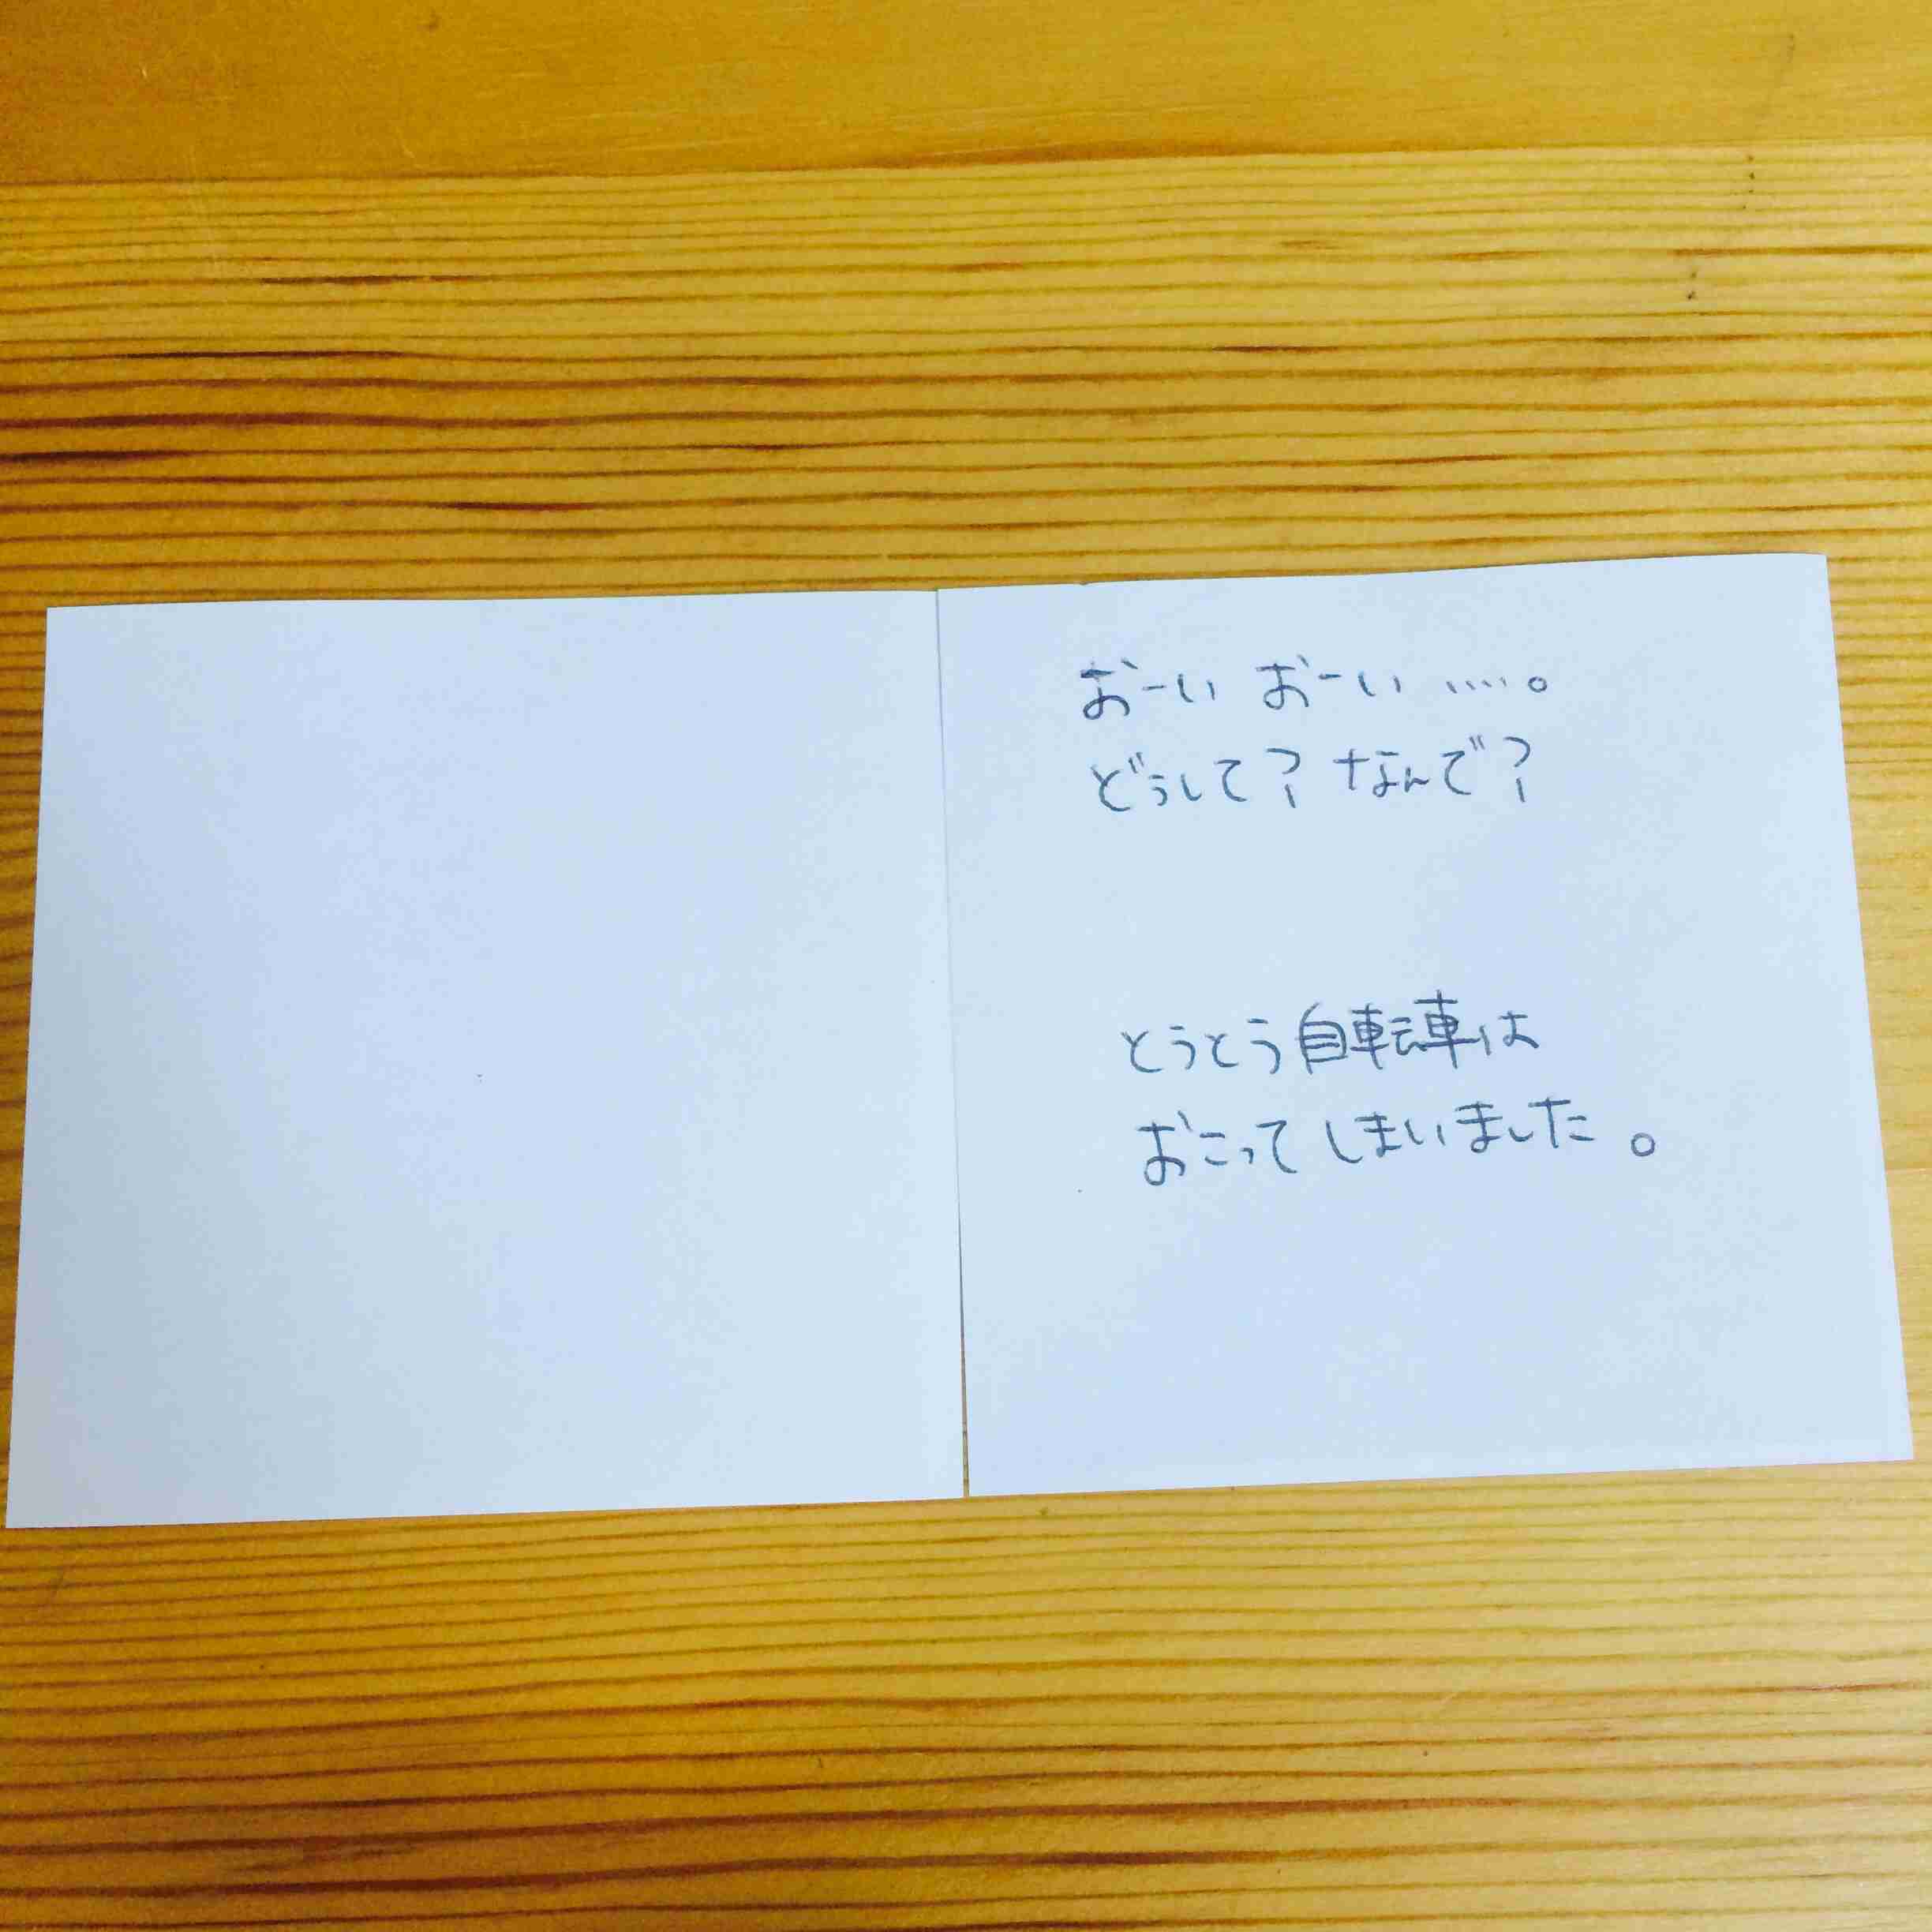 おーい おーい ....。
どうして? なんで?
とうとう自転車は
おこってしまいました。